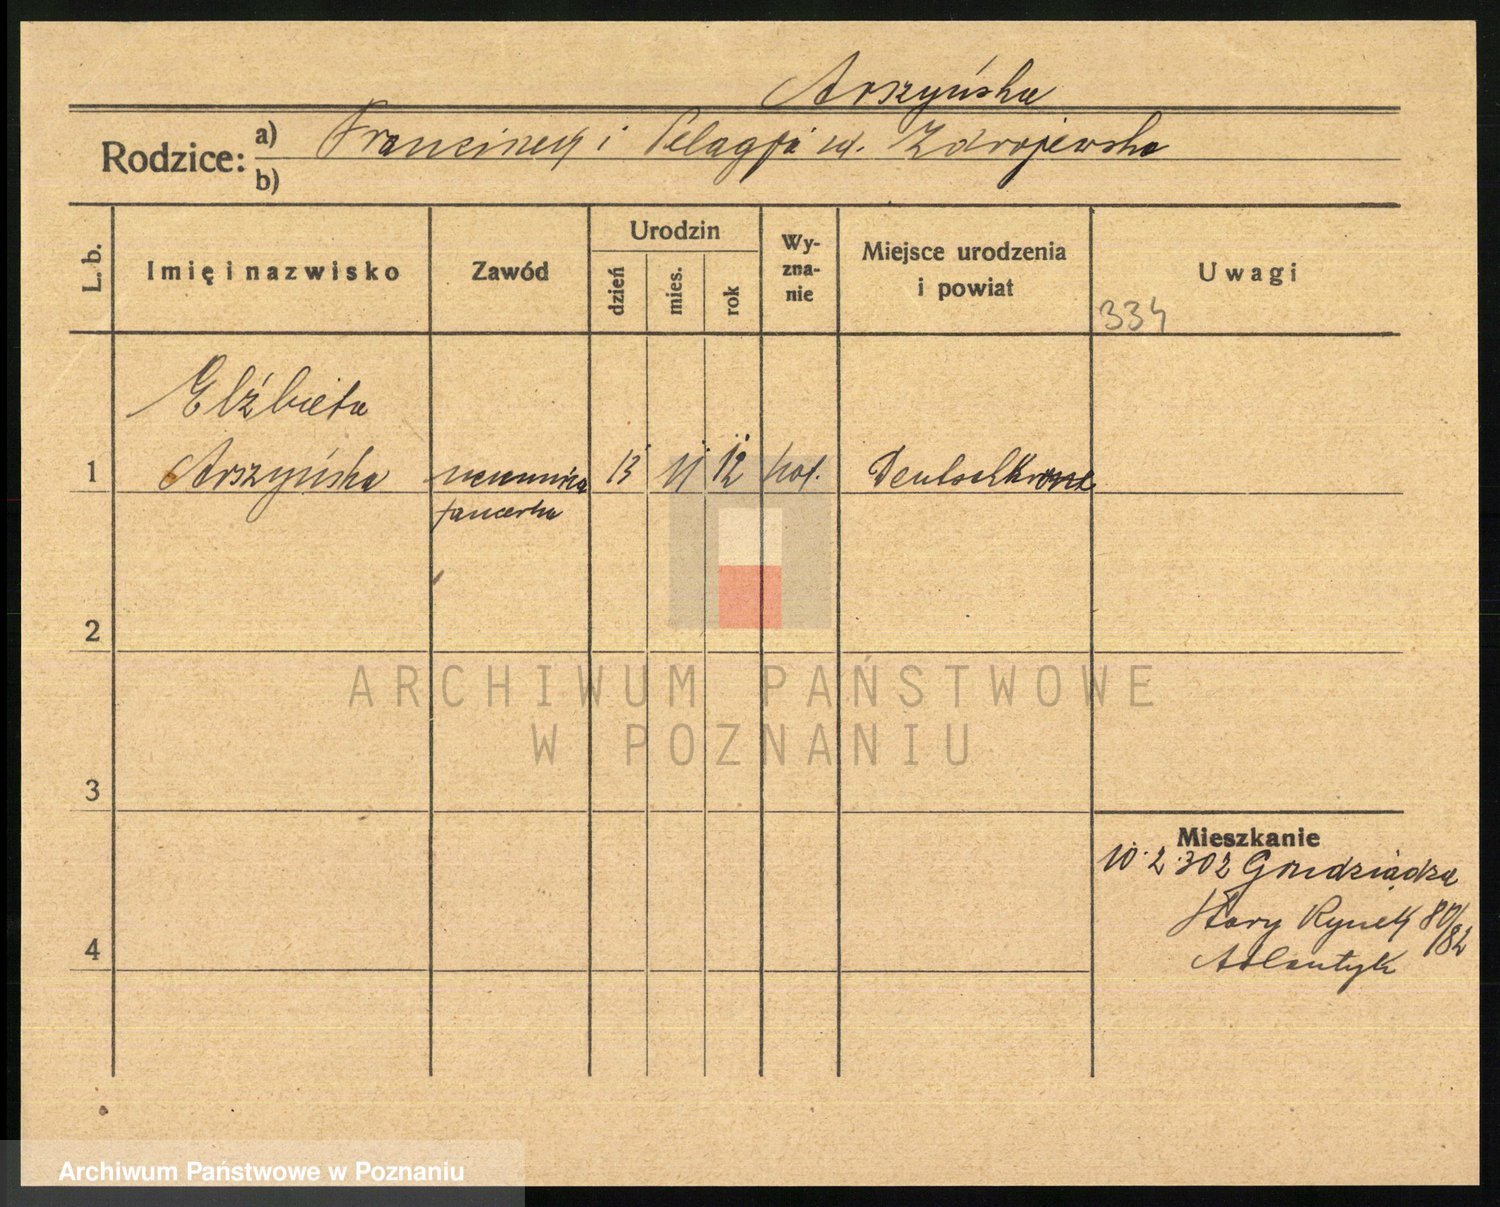 Arszyńska
Rodzice: a) Franciszek i Pelagja ur. Zdrojewska
b)
L. b. Imię i nazwisko Zawód Urodzin dzień mies. rok Wyznanie Miejsce urodzenia i powiat Uwagi
334
Elżbieta
1 Arszyńska 13 11 12 kat. Deutschkrone
tancerka
2
ARCHIWUM PAŃSTWOWE
W POZNANIU
3
Mieszkanie
10.2.302 Grudziądza
Stary Rynek 80/82
4 Adlantyk
Archiwum Państwowe w Poznaniu